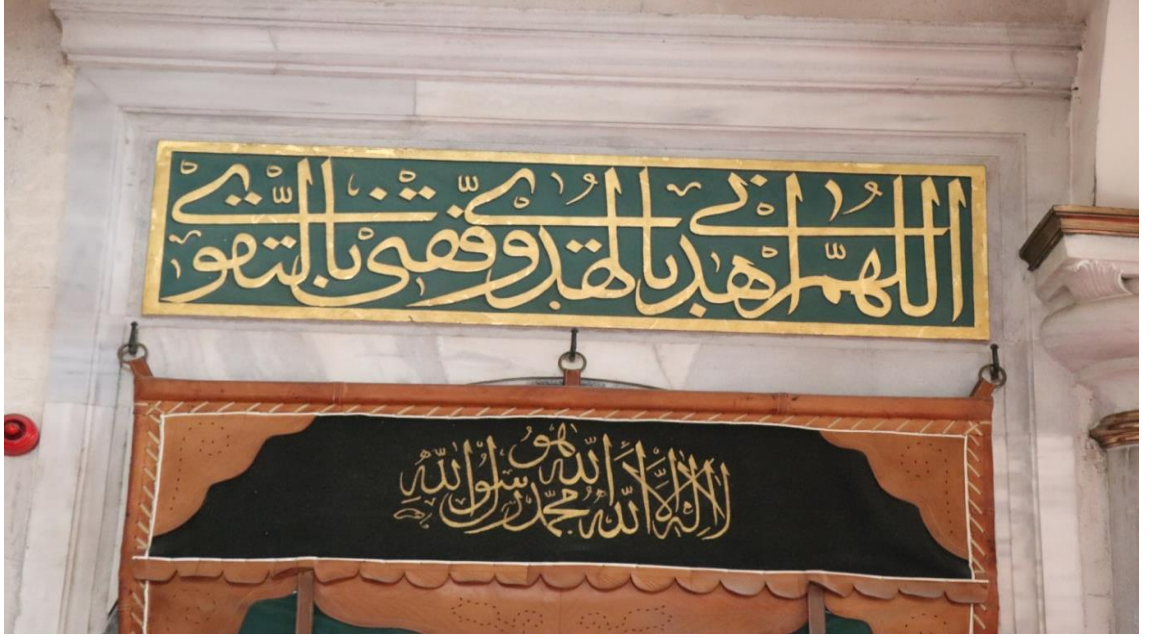 اللّهمّ اهدنى بالهدى وفّقنى بالتّقوى
لا اله الّا الله محمّد رسول الله